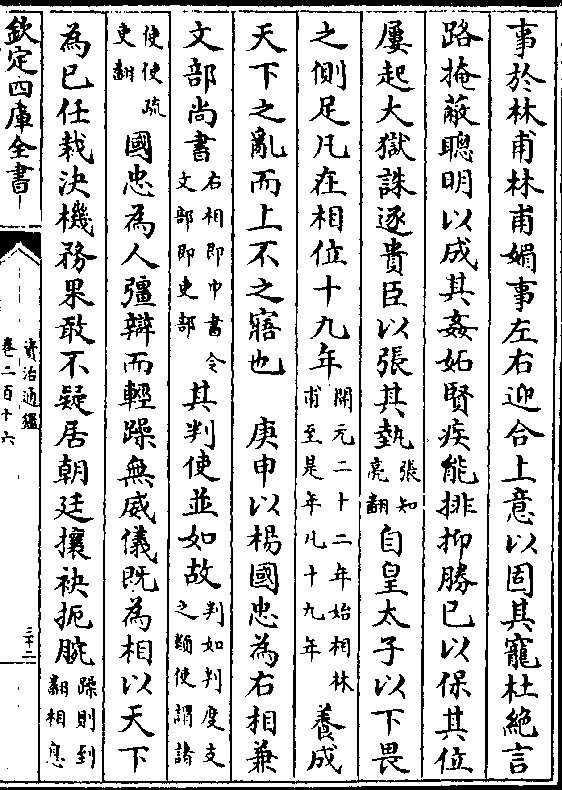 事於林甫林甫媚事左右迎合上意以固其寵杜絶言
路掩蔽聰明以成其姦妬賢疾能排抑勝已以保其位
屢起大獄誅逐貴臣以張其埶張知亮翻自皇太子以下畏
之側足凡在相位十九年開元二十二年始相林甫至是年凡十九年養成
天下之亂而上不之寤也　庚申以楊國忠為右相兼
文部尚書右相即中書令文部即吏部其判使並如故判如判度支之類使謂諸
使使疏吏翻國忠為人彊辯而輕躁無威儀既為相以天下
為已任裁決機務果敢不疑居朝廷攘袂扼腕躁則到翻相息
欽定四庫全書
資治通鑑
卷二百十六
三十二